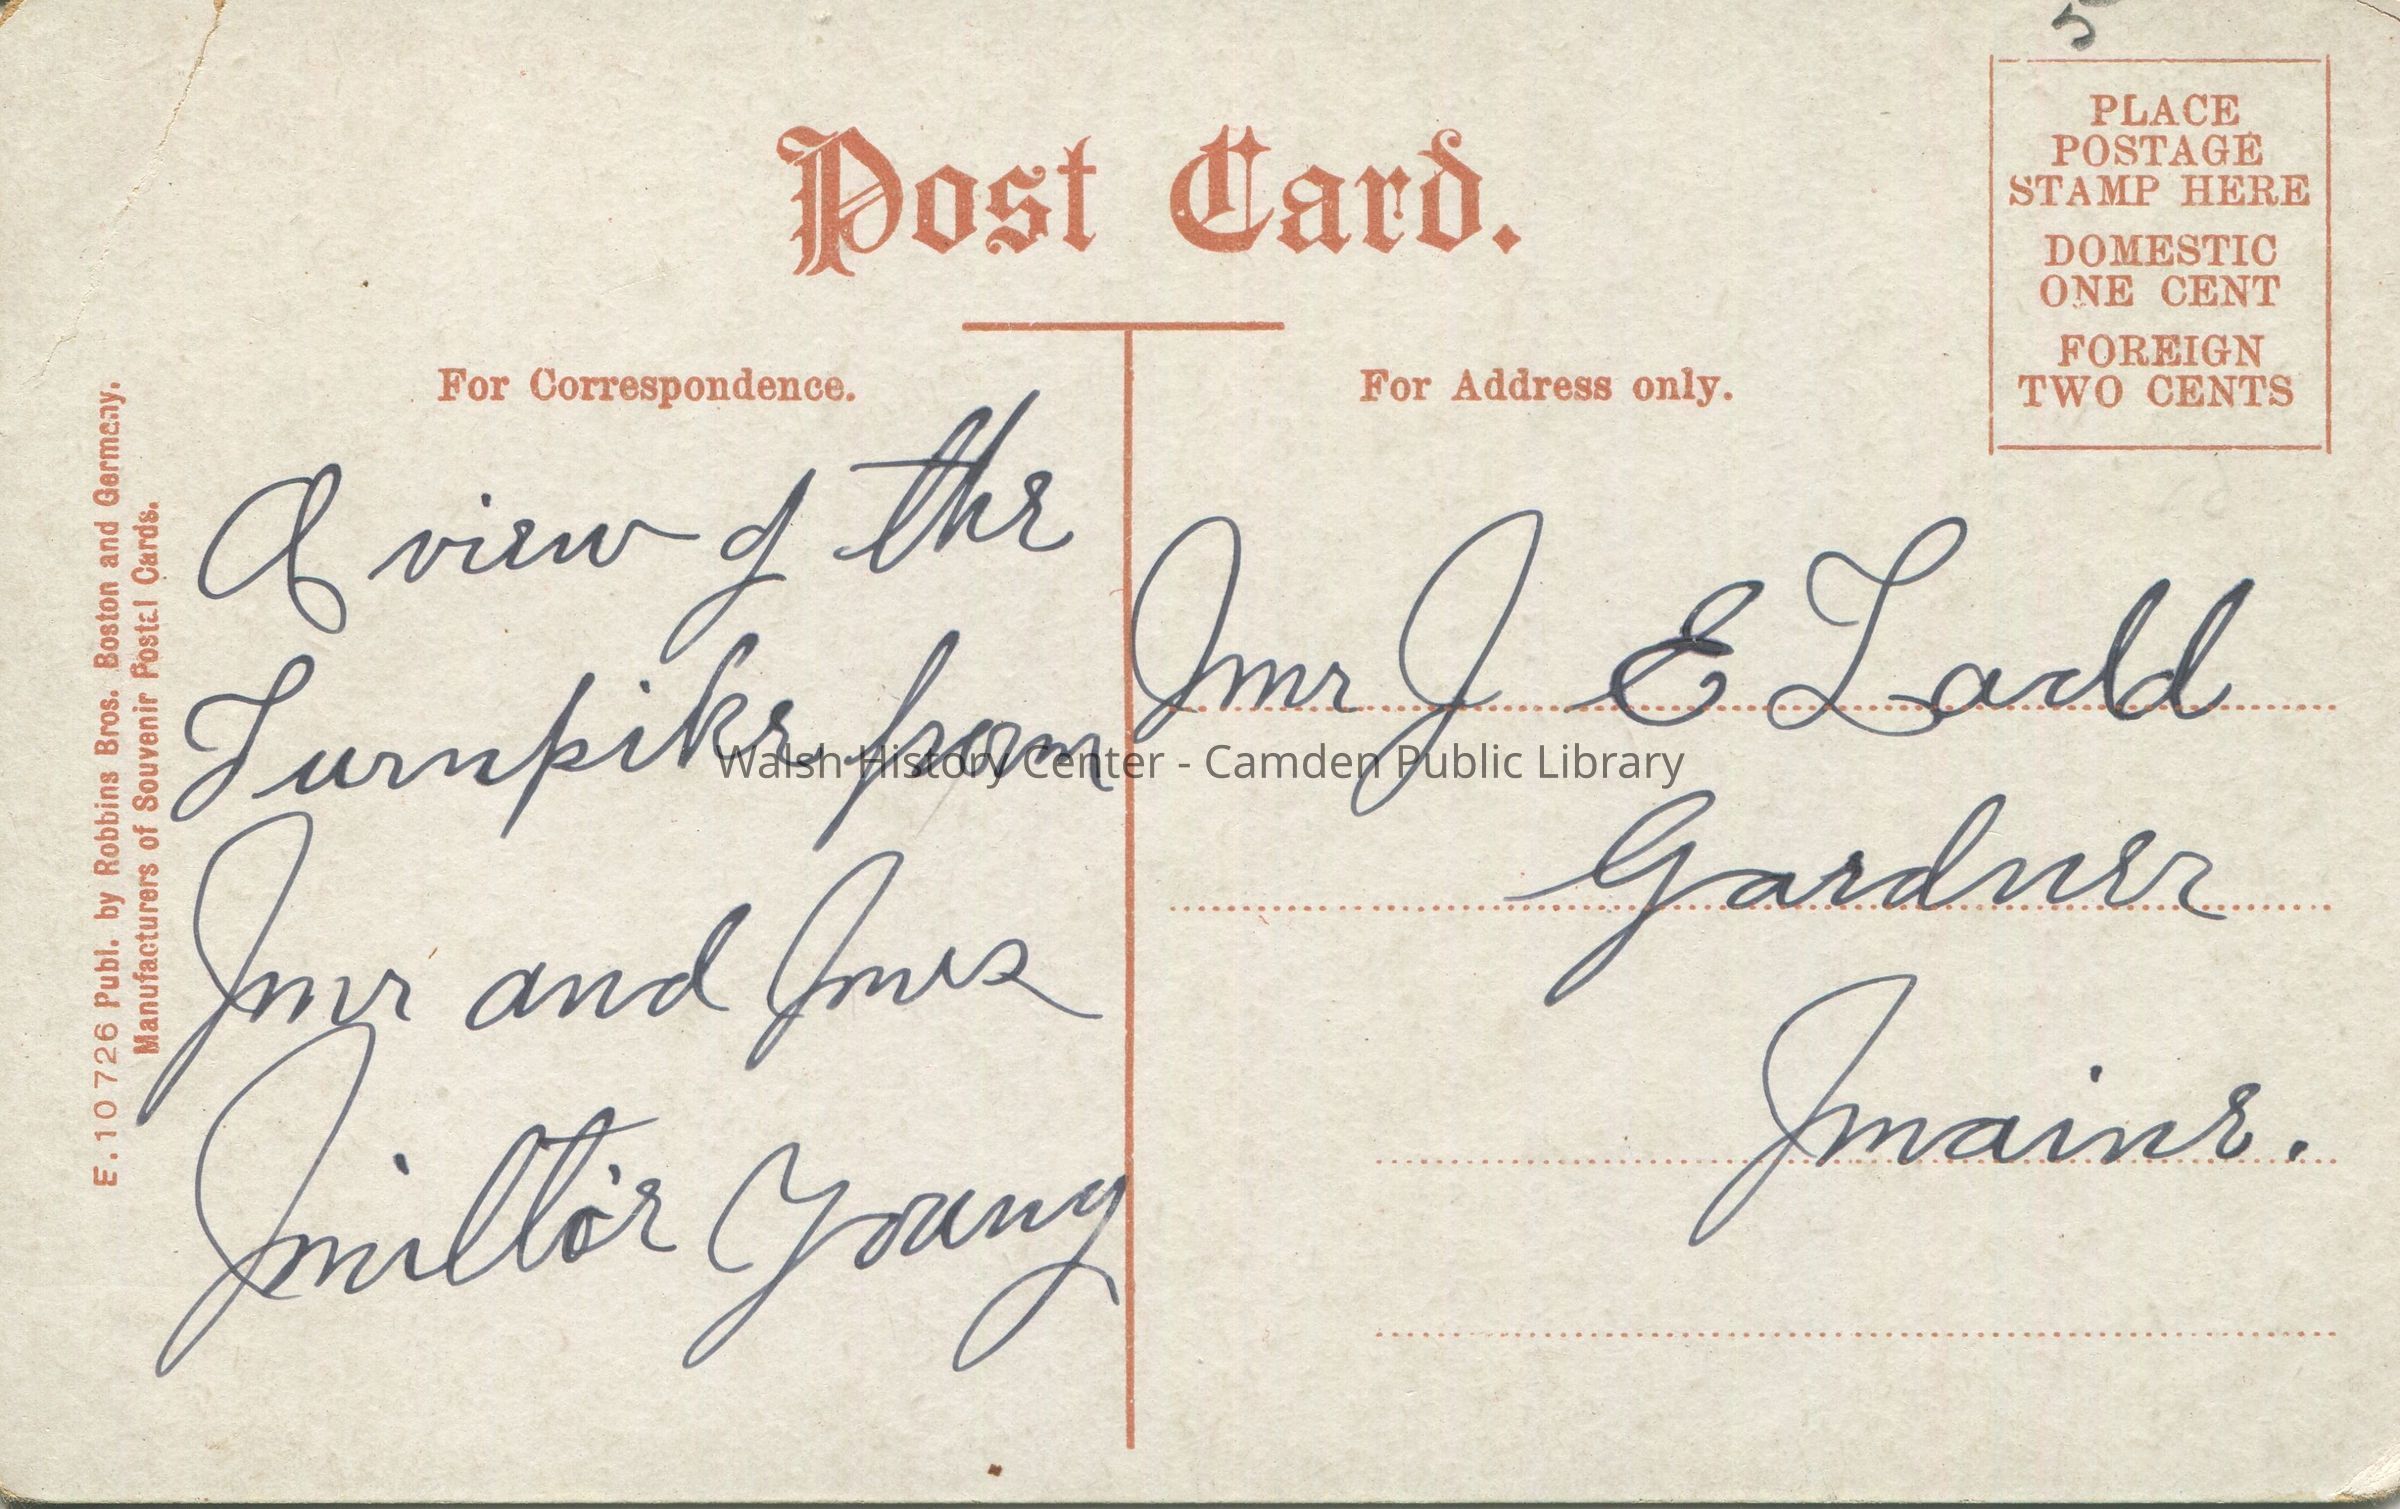 5
PLACE
POSTAGE
STAMP HERE
DOMESTIC
ONE CENT
FOREIGN
TWO CENTS
Post Card.
For Correspondence.
For Address only.
A view of the
Turnpike from
Mr and Mrs
Young
Mr J E Ladd
Gardner
Maine.
E. 10 726 Publ. by Robbins Bros. Boston and Germany.
Manufacturers of Souvenir Postal Cards.
Walsh History Center - Camden Public Library